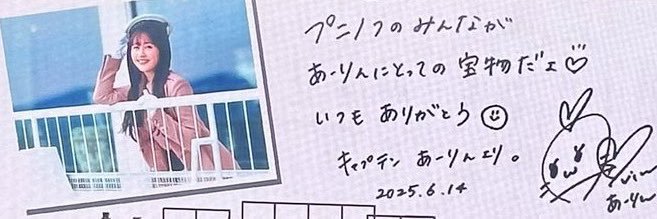 プニノフのみんなが
あーりんにとっての宝物だェ♡
いつもありがとう☺
キャプテンあーりんより。
2025.6.14
あーりん